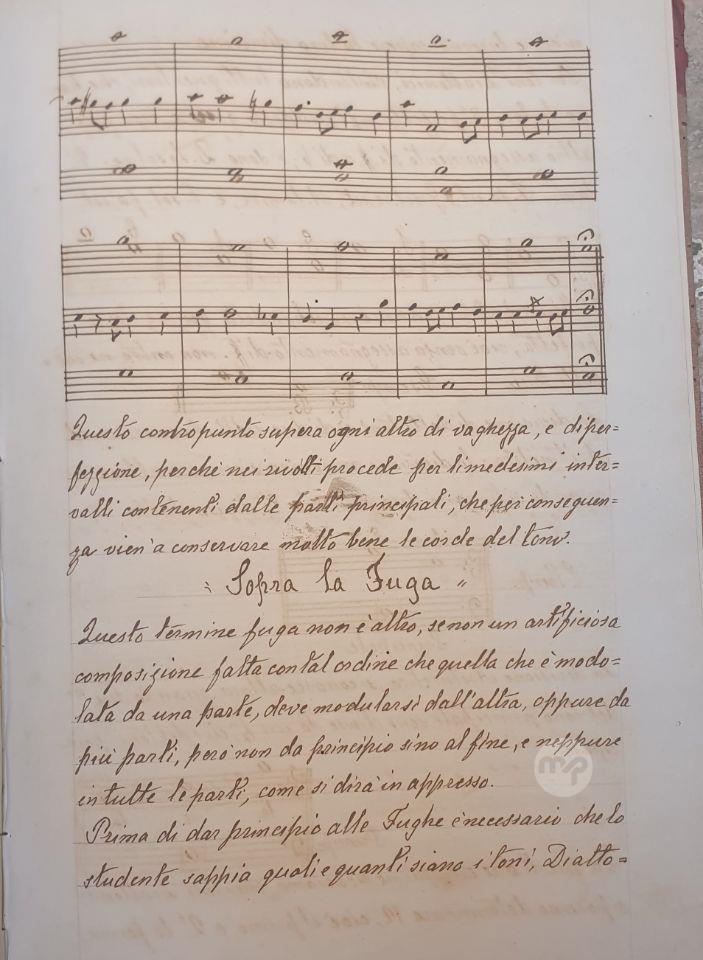 Questo contropunto supera ogni altro di vaghezza, e di per=
fezzione, perchè nei rivolti procede per li medesimi inter=
valli contenenti dalle parti principali, che per conseguen=
za vien'a conservare molto bene le corde del tono.
" Sopra la Fuga "
Questo termine fuga non è altro, se non un artificiosa
composizione fatta con tal ordine che quella che è modo=
lata da una parte, deve modularsi dall'altra, oppure da
più parti, però non da principio sino al fine, e neppure
in tutte le parti, come si dirà in appresso.
Prima di dar principio alle Fughe è necessario che lo
studente sappia quali e quanti siano i toni, Diatto=
mp